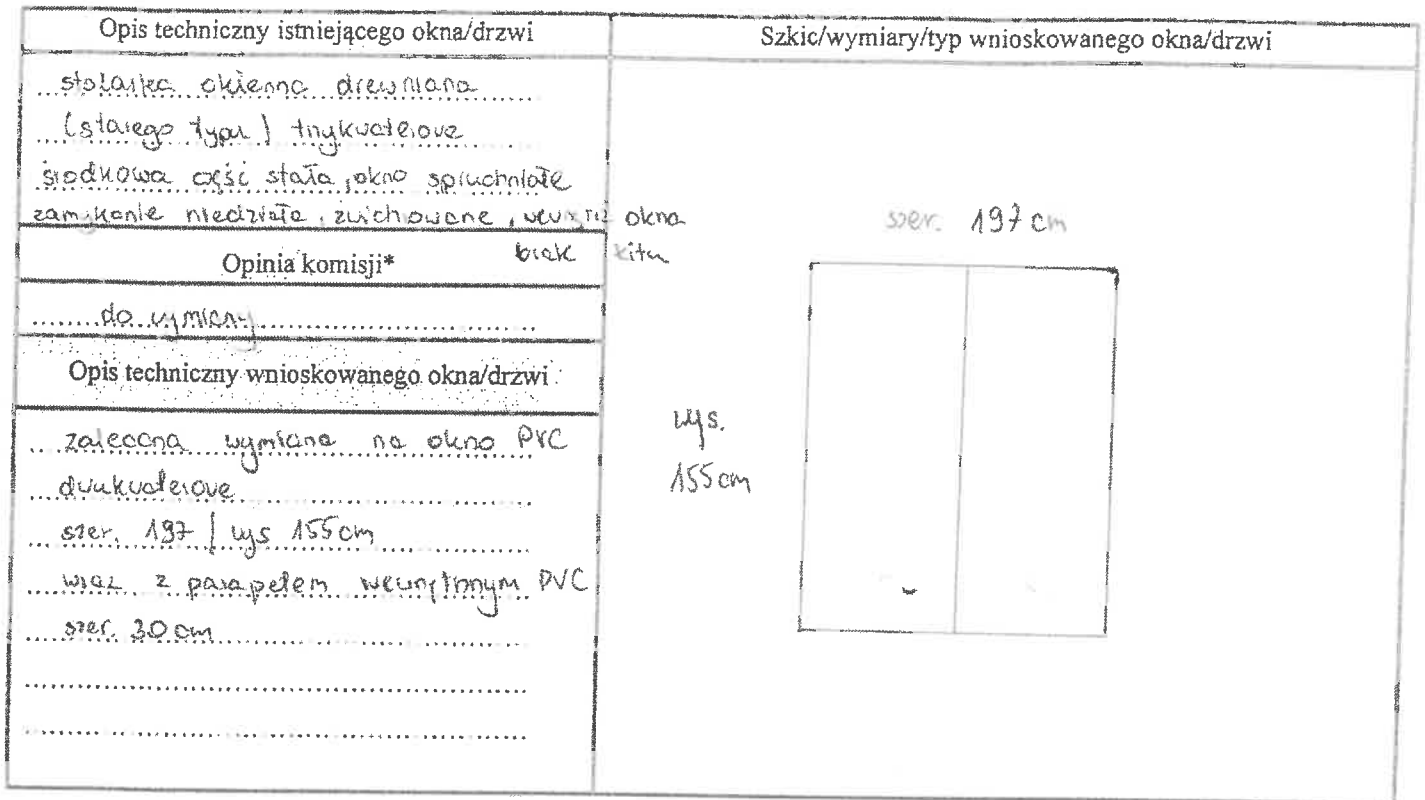 Opis techniczny istniejącego okna/drzwi
stolarka okienna drewniana
(starego typu) trzykwaterowe
środkowa część stała, okno spruchniałe
zamykanie niedziała, zwichowane, wewnątrz okna
brak kitu
Opinia komisji*
do wymiany
Opis techniczny wnioskowanego okna/drzwi
zalecana wymiana na okno PVC
dwukwaterowe
szer. 197 / wys 155cm
wraz z parapetem wewnętrznym PVC
szer. 30 cm
Szkic/wymiary/typ wnioskowanego okna/drzwi
szer. 197 cm
wys.
155 cm